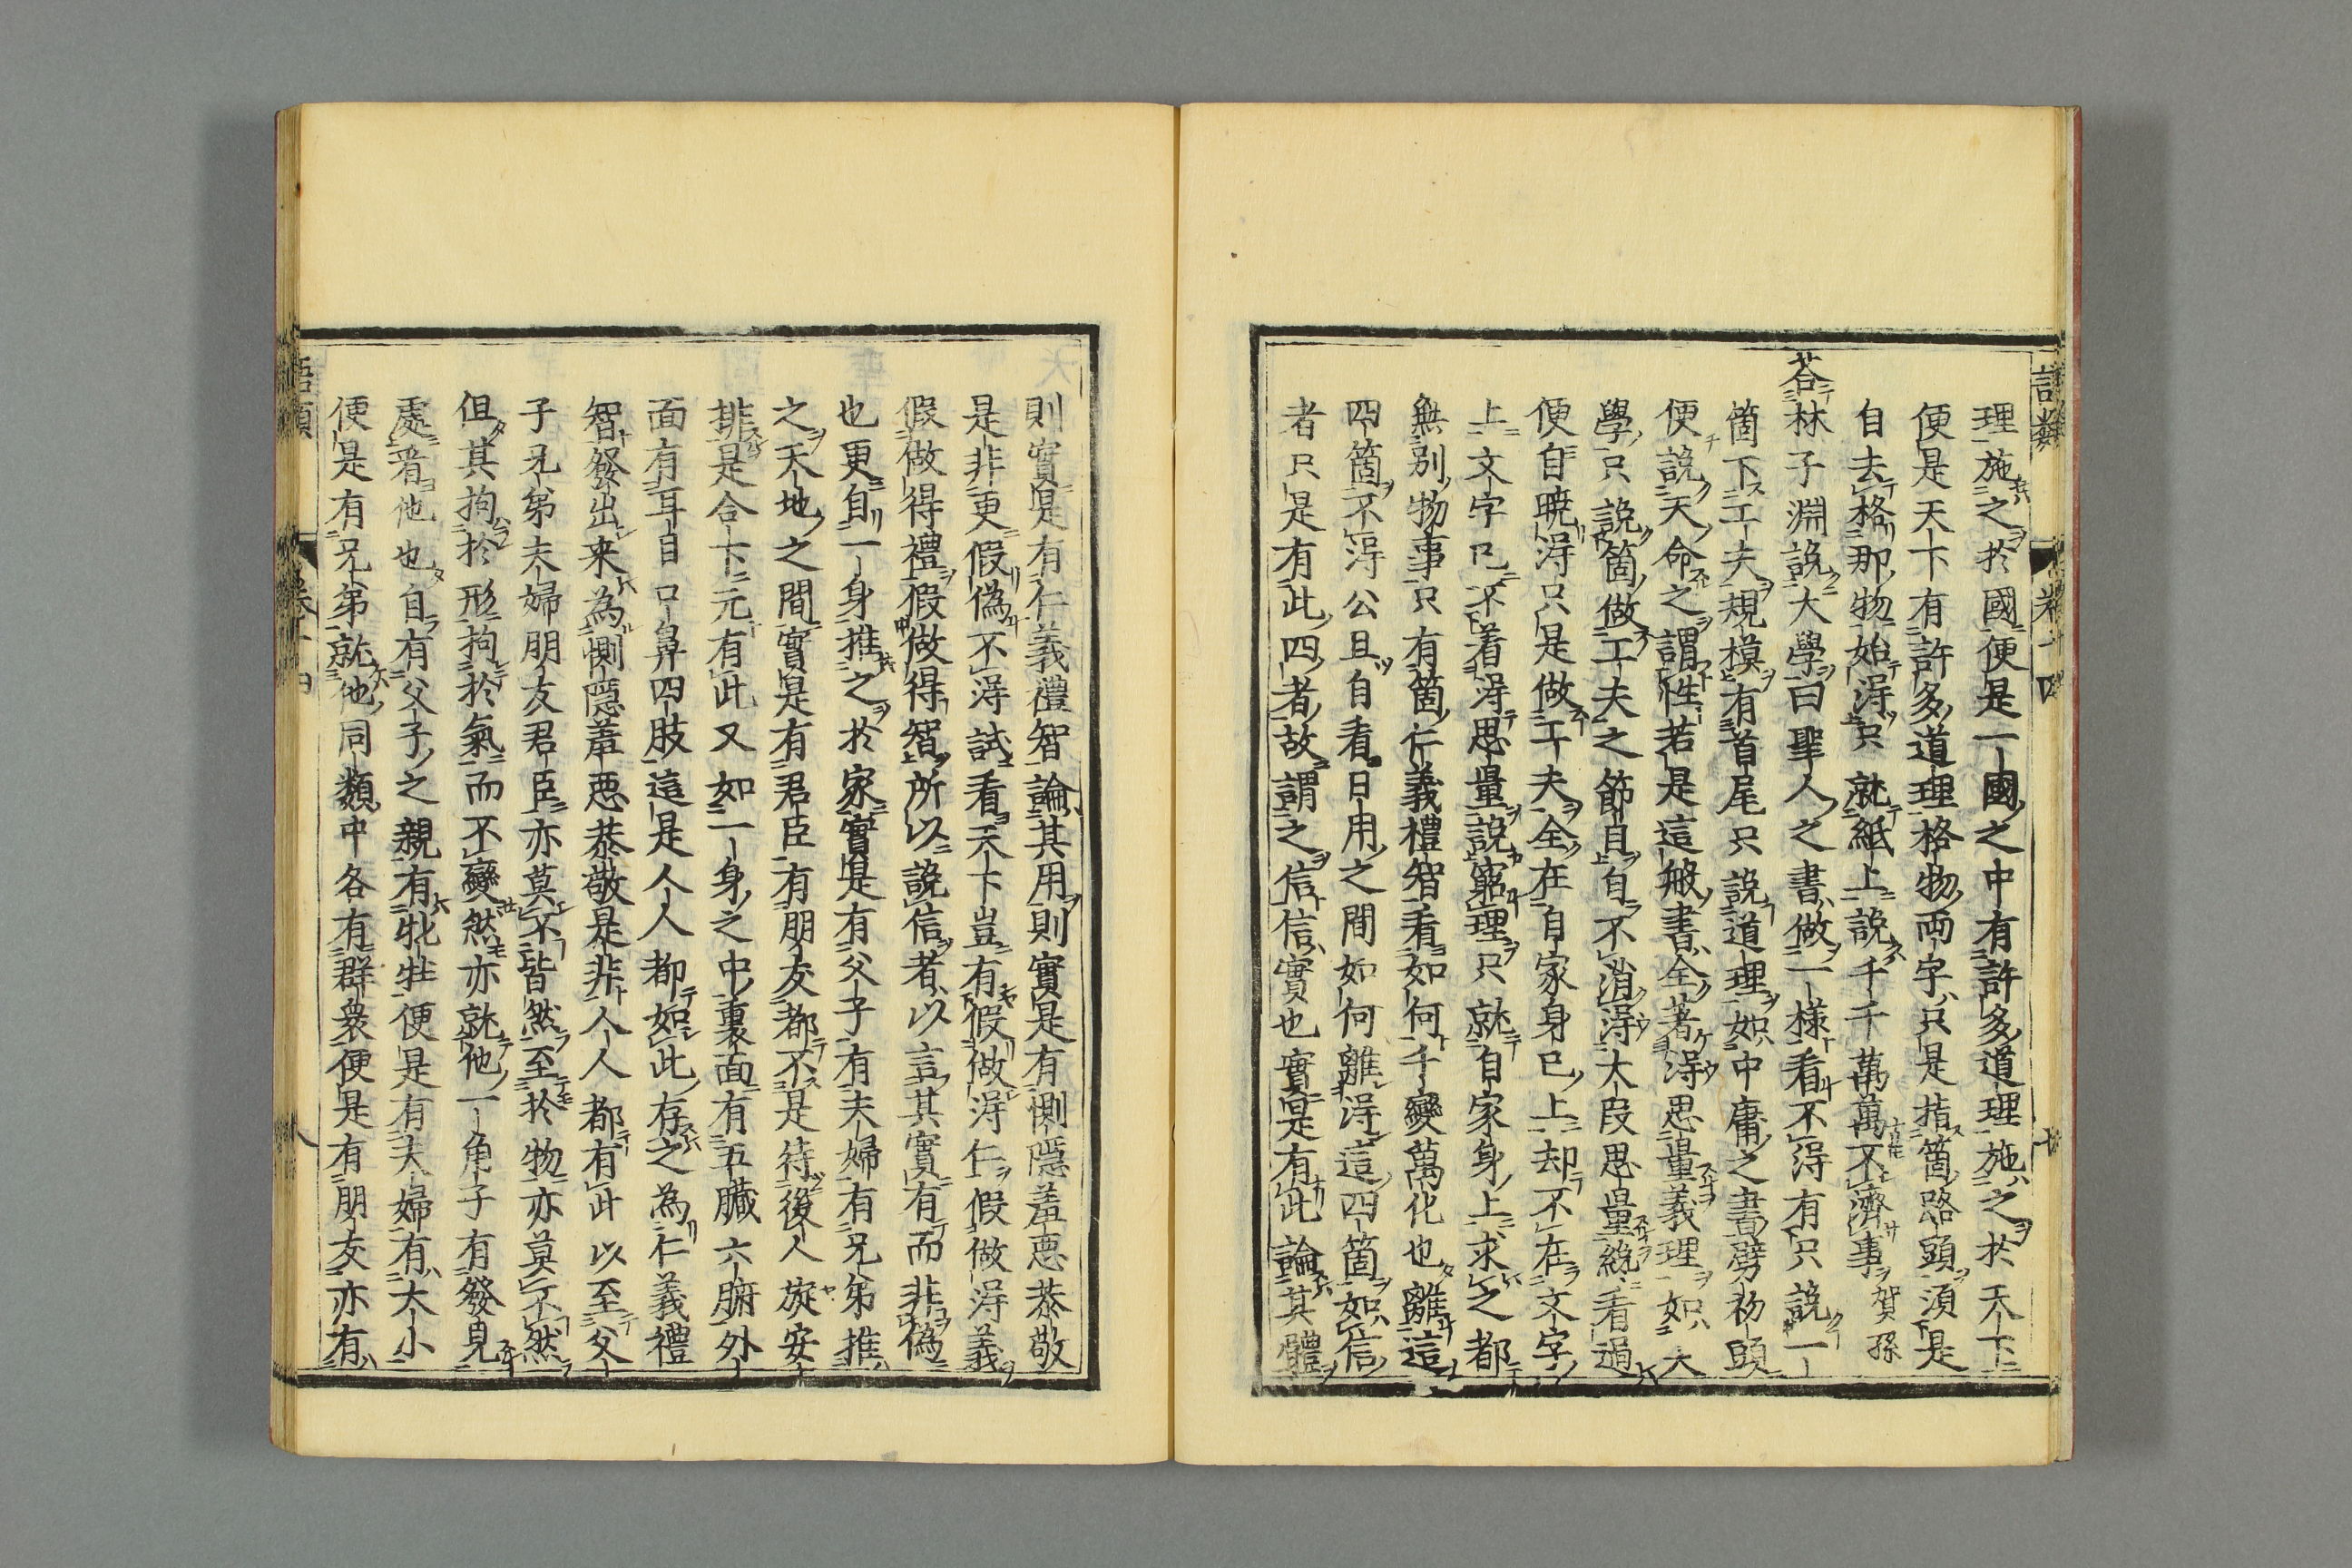 理施之於國便是一國之中有許多道理施之於天下
便是天下有許多道理格物兩字只是指箇路頭須是
自去格那物始淂只就紙上説千千萬萬不濟事賀孫
荅林子淵説大學曰聖人之書做一樣看不淂有只説一
箇下工夫規模有首尾只説道理如中庸之書劈初頭
便説天命之謂性若是這般書全著淂思量義理如大
學只説箇做工夫之節目自不消淂大段思量纔看過
便自曉淂只是做工夫全在自家身已上却不在文字
上文字已不着淂思量説窮理只就自家身上求之都
無別物事只有箇仁義禮智看如何千變萬化也離這
四箇不淂公且自看日用之間如何離淂這四箇如信
者只是有此四者故謂之信信實也實是有此論其體
則實是有仁義禮智論其用則實是有惻隱羞惡恭敬
是非更假偽不淂試看天下豈有假做淂仁假做淂義
假做得禮假做得智所以説信者以言其實有而非偽
也更自一身推之於家實是有父子有夫婦有兄弟推
之天地之間實是有君臣有朋友都不是待後人旋安
排是合下元有此又如一身之中裏面有五臟六腑外
面有耳目口鼻四肢這是人人都如此存之為仁義禮
智發出来為惻隱羞惡恭敬是非人人都有此以至父
子兄弟夫婦朋友君臣亦莫不皆然至於物亦莫不然
但其拘於形拘於氣而不變然亦就他一角子有發見
處看他也自有父子之親有牝牡便是有夫婦有大小
便是有兄弟就他同類中各有群衆便是有朋友亦有